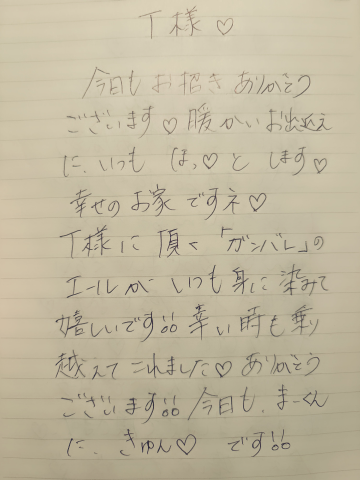 T様♡
今日もお招きありがとう
ございます♡暖かいお出迎え
に、いつも ほっ♡と します♡
幸せの お家 ですネ♡
T様に 頂く「ガンバレ」の
エールが いつも身に染みて
嬉しいです!! 辛い時も乗り
越えてこれました♡ありがとう
ございます!! 今日も、まーくん
に、きゅん♡ です!!